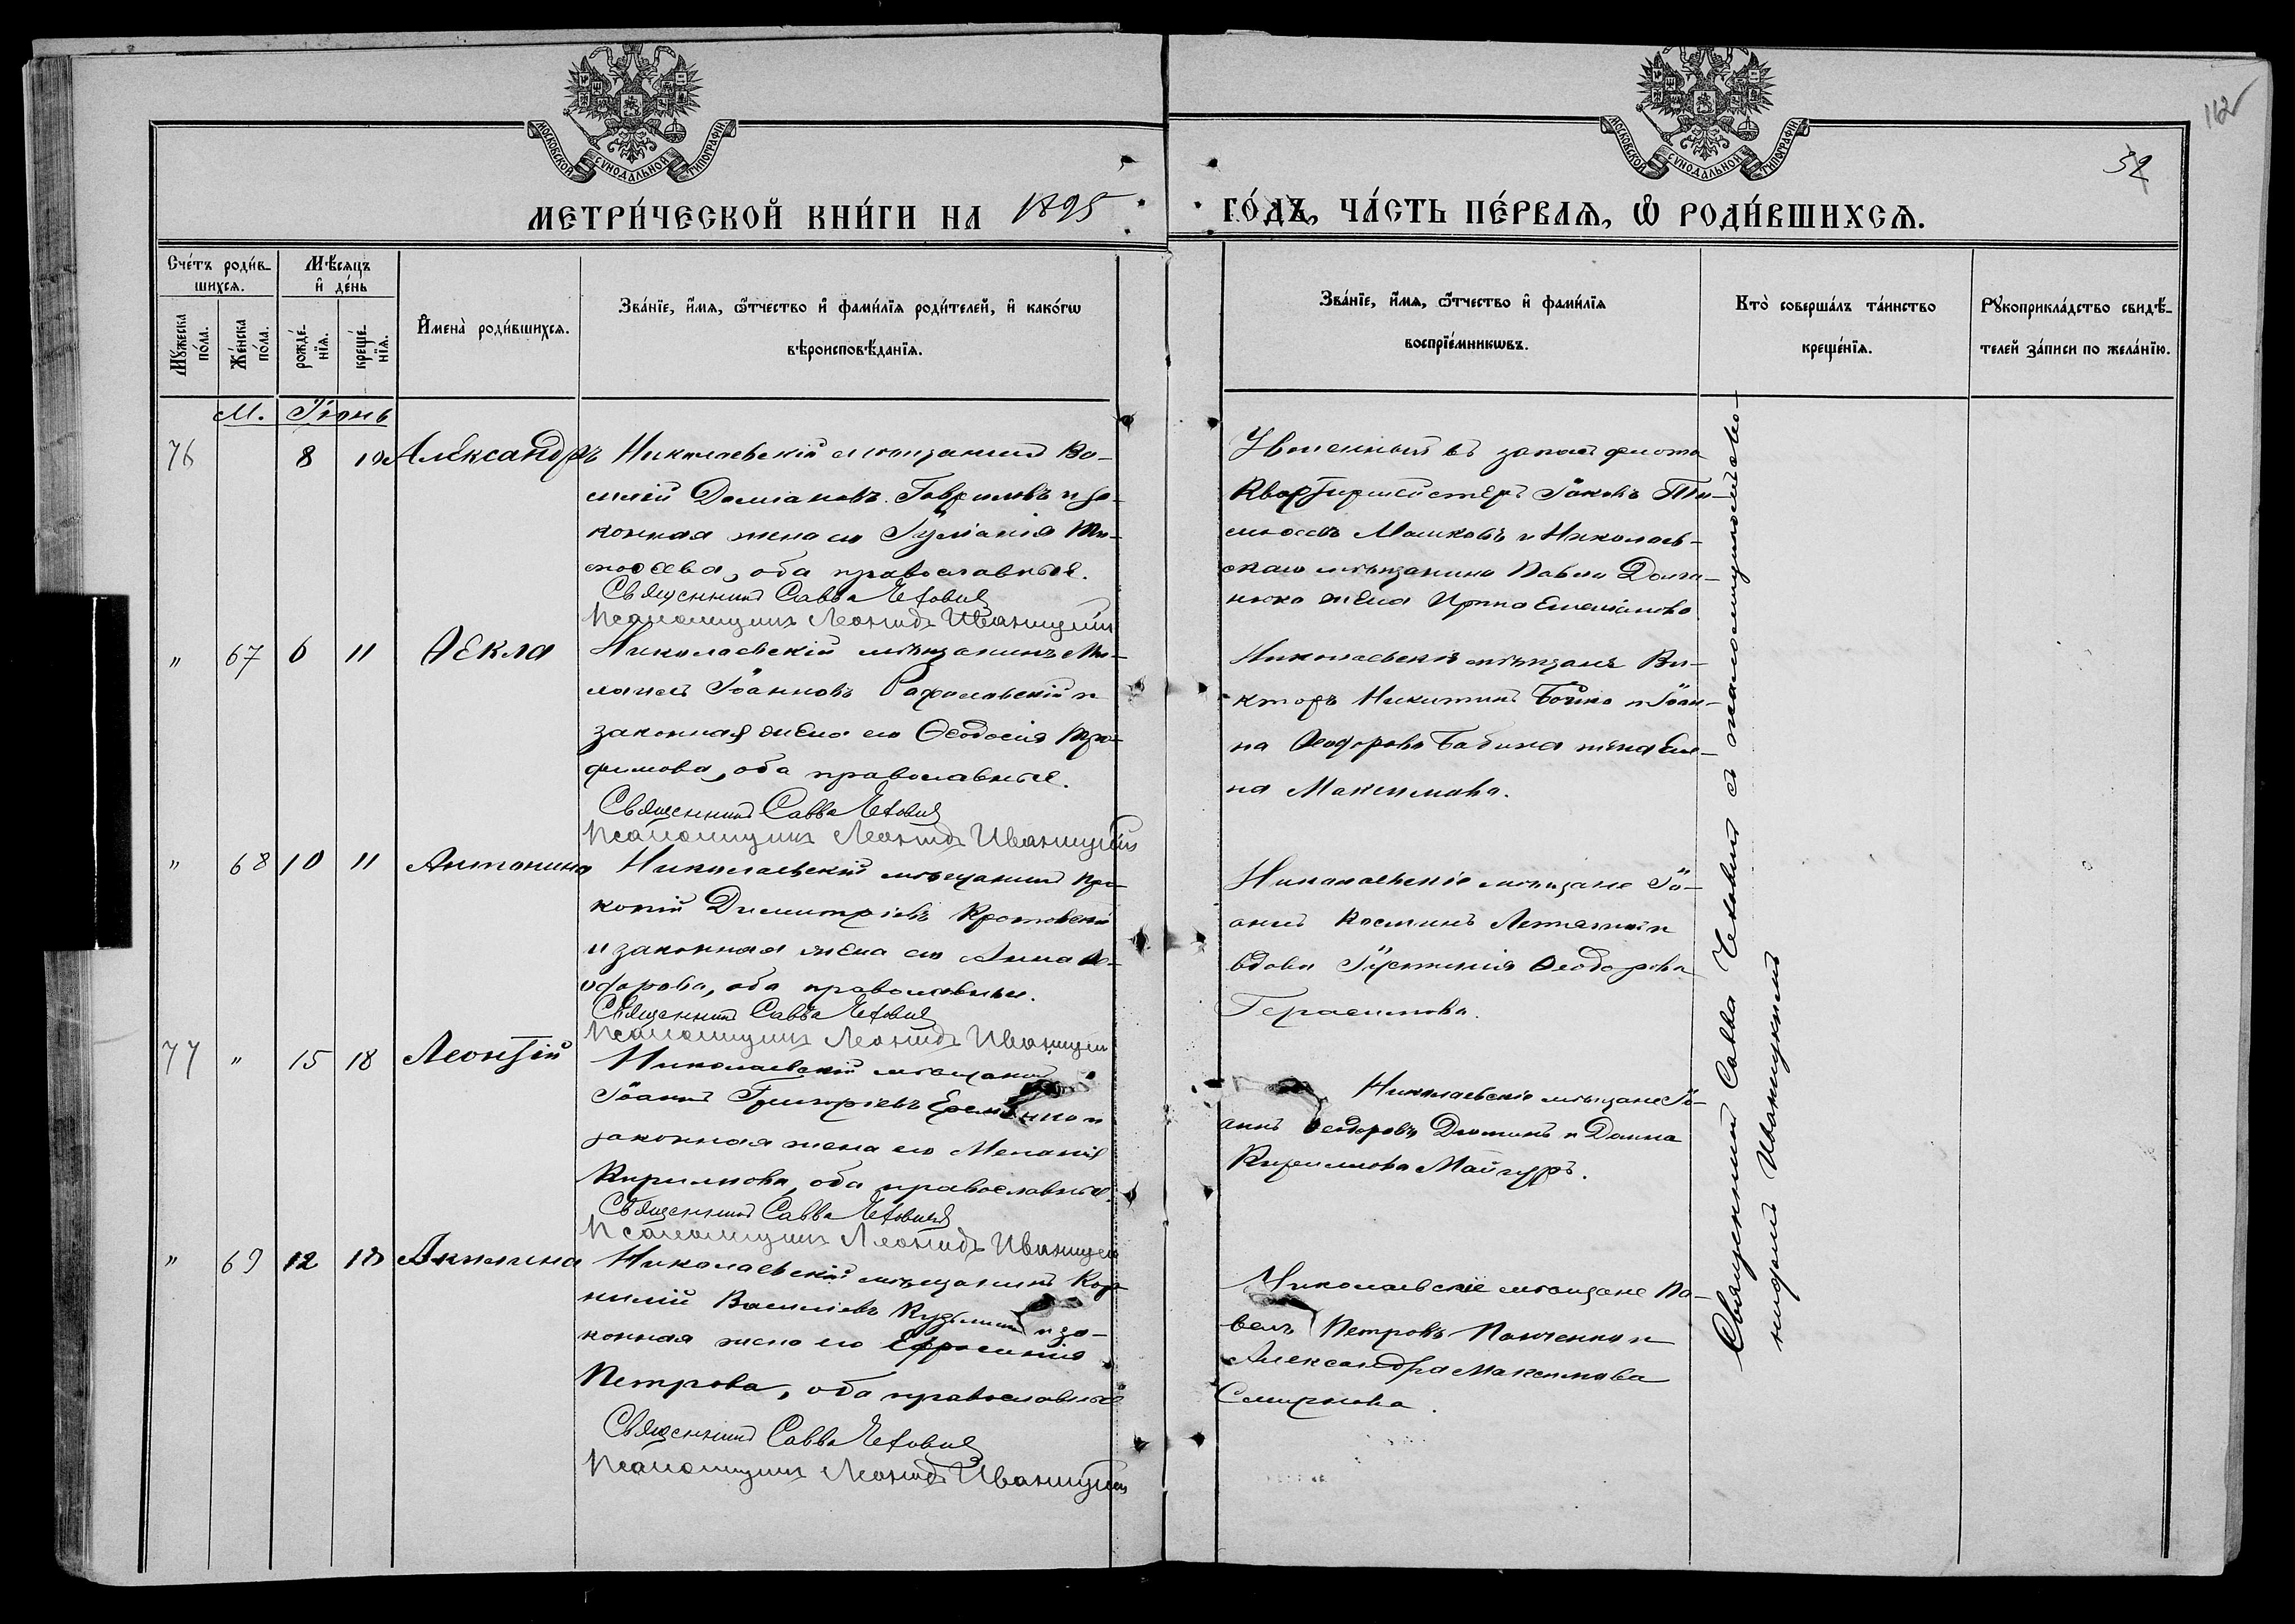 112
52
МОСКОВСКОЙ СѴНОДАЛЬНОЙ ТИПОГРАФІИ
МОСКОВСКОЙ СѴНОДАЛЬНОЙ ТИПОГРАФІИ
МЕТРИ́ЧЕСКОЙ КНИ́ГИ НА 1895
ГО́ДЪ, ЧА́СТЬ ПЕ́РВАѦ, Ѡ РОДИ́ВШИХСѦ.
Сче́тъ роди́вшихсѧ.
Мꙋ́жеска по́ла.
Же́нска по́ла.
Мѣ́сѧцъ и҆ де́нь
рожде́нїѧ.
креще́нїѧ.
И҆мена̀ роди́вшихсѧ.
Зва́нїе, и҆́мѧ, ѻ҆́тчество и҆ фами́лїѧ роди́телей, и҆ како́гѡ
вѣроисповѣ́данїѧ.
Зва́нїе, и҆́мѧ, ѻ҆́тчество и҆ фами́лїѧ
воспрїе́мникѡвъ.
Кто̀ соверша́лъ та́инство
креще́нїѧ.
Рꙋкоприкла́дство свидѣ́телей за́писи по жела́нїю.
М. Іюнь
76 8 10 Александръ
Николаевскій мѣщанинъ Ва-
силій Даміановъ Гавриловъ и за-
конная жена его Іуліанія Ти-
моѳеева, оба православные.
Священникъ Савва Чехович
Псаломщикъ Леонидъ Иваницкій
Уволенный въ запасъ флота
Квартирмейстеръ Іаковъ Ти-
моѳеевъ Машковъ и Николаев-
скаго мѣщанина Павла
жена Ирина Емельянова
" 67 6 11 Ѳекла
Николаевскій мѣщанинъ Ми-
хаилъ Іоанновъ и
законная жена его Ѳеодосія Тро-
фимова, оба православные.
Священникъ Савва Чехович
Псаломщикъ Леонидъ Иваницкій
Николаевскіе мѣщане Ви-
кторъ Никитинъ Бойко и Іоан-
на Ѳеодорова Бабина жена Еле-
на Максимова.
" 68 10 11 Антонина
Николаевскій мѣщанинъ Про-
копій Димитріевъ Кротовскій
и законная жена его Анна Ѳе-
одорова, оба православные.
Священникъ Савва Чехович
Псаломщикъ Леонидъ Иваницкій
Николаевскіе мѣщане Іо-
аннъ Косминъ и
вдова Іустинія Ѳеодорова
Герасимова.
77 " 15 18 Леонтій
Николаевскій мѣщанинъ
Іоаннъ Григоріевъ и
законная жена его Меланія
Кириллова, оба православные.
Священникъ Савва Чехович
Псаломщикъ Леонидъ Иваницкій
Николаевскіе мѣщане Іо-
аннъ Ѳеодоровъ Дюминъ и Домна
Кириллова Майгуръ.
" 69 12 18 Акилина
Николаевскій мѣщанинъ Кор-
нилій Василіевъ Кузьминъ и за-
конная жена его Ефросинія
Петрова, оба православные
Священникъ Савва Чехович
Псаломщикъ Леонидъ Иваницкій
Николаевскіе мѣщане Па-
велъ Петровъ Панченко и
Александра Максимова
Смирнова.
Священникъ Савва Чеховичъ съ псаломщикомъ Лео-
нидомъ Иваницкимъ